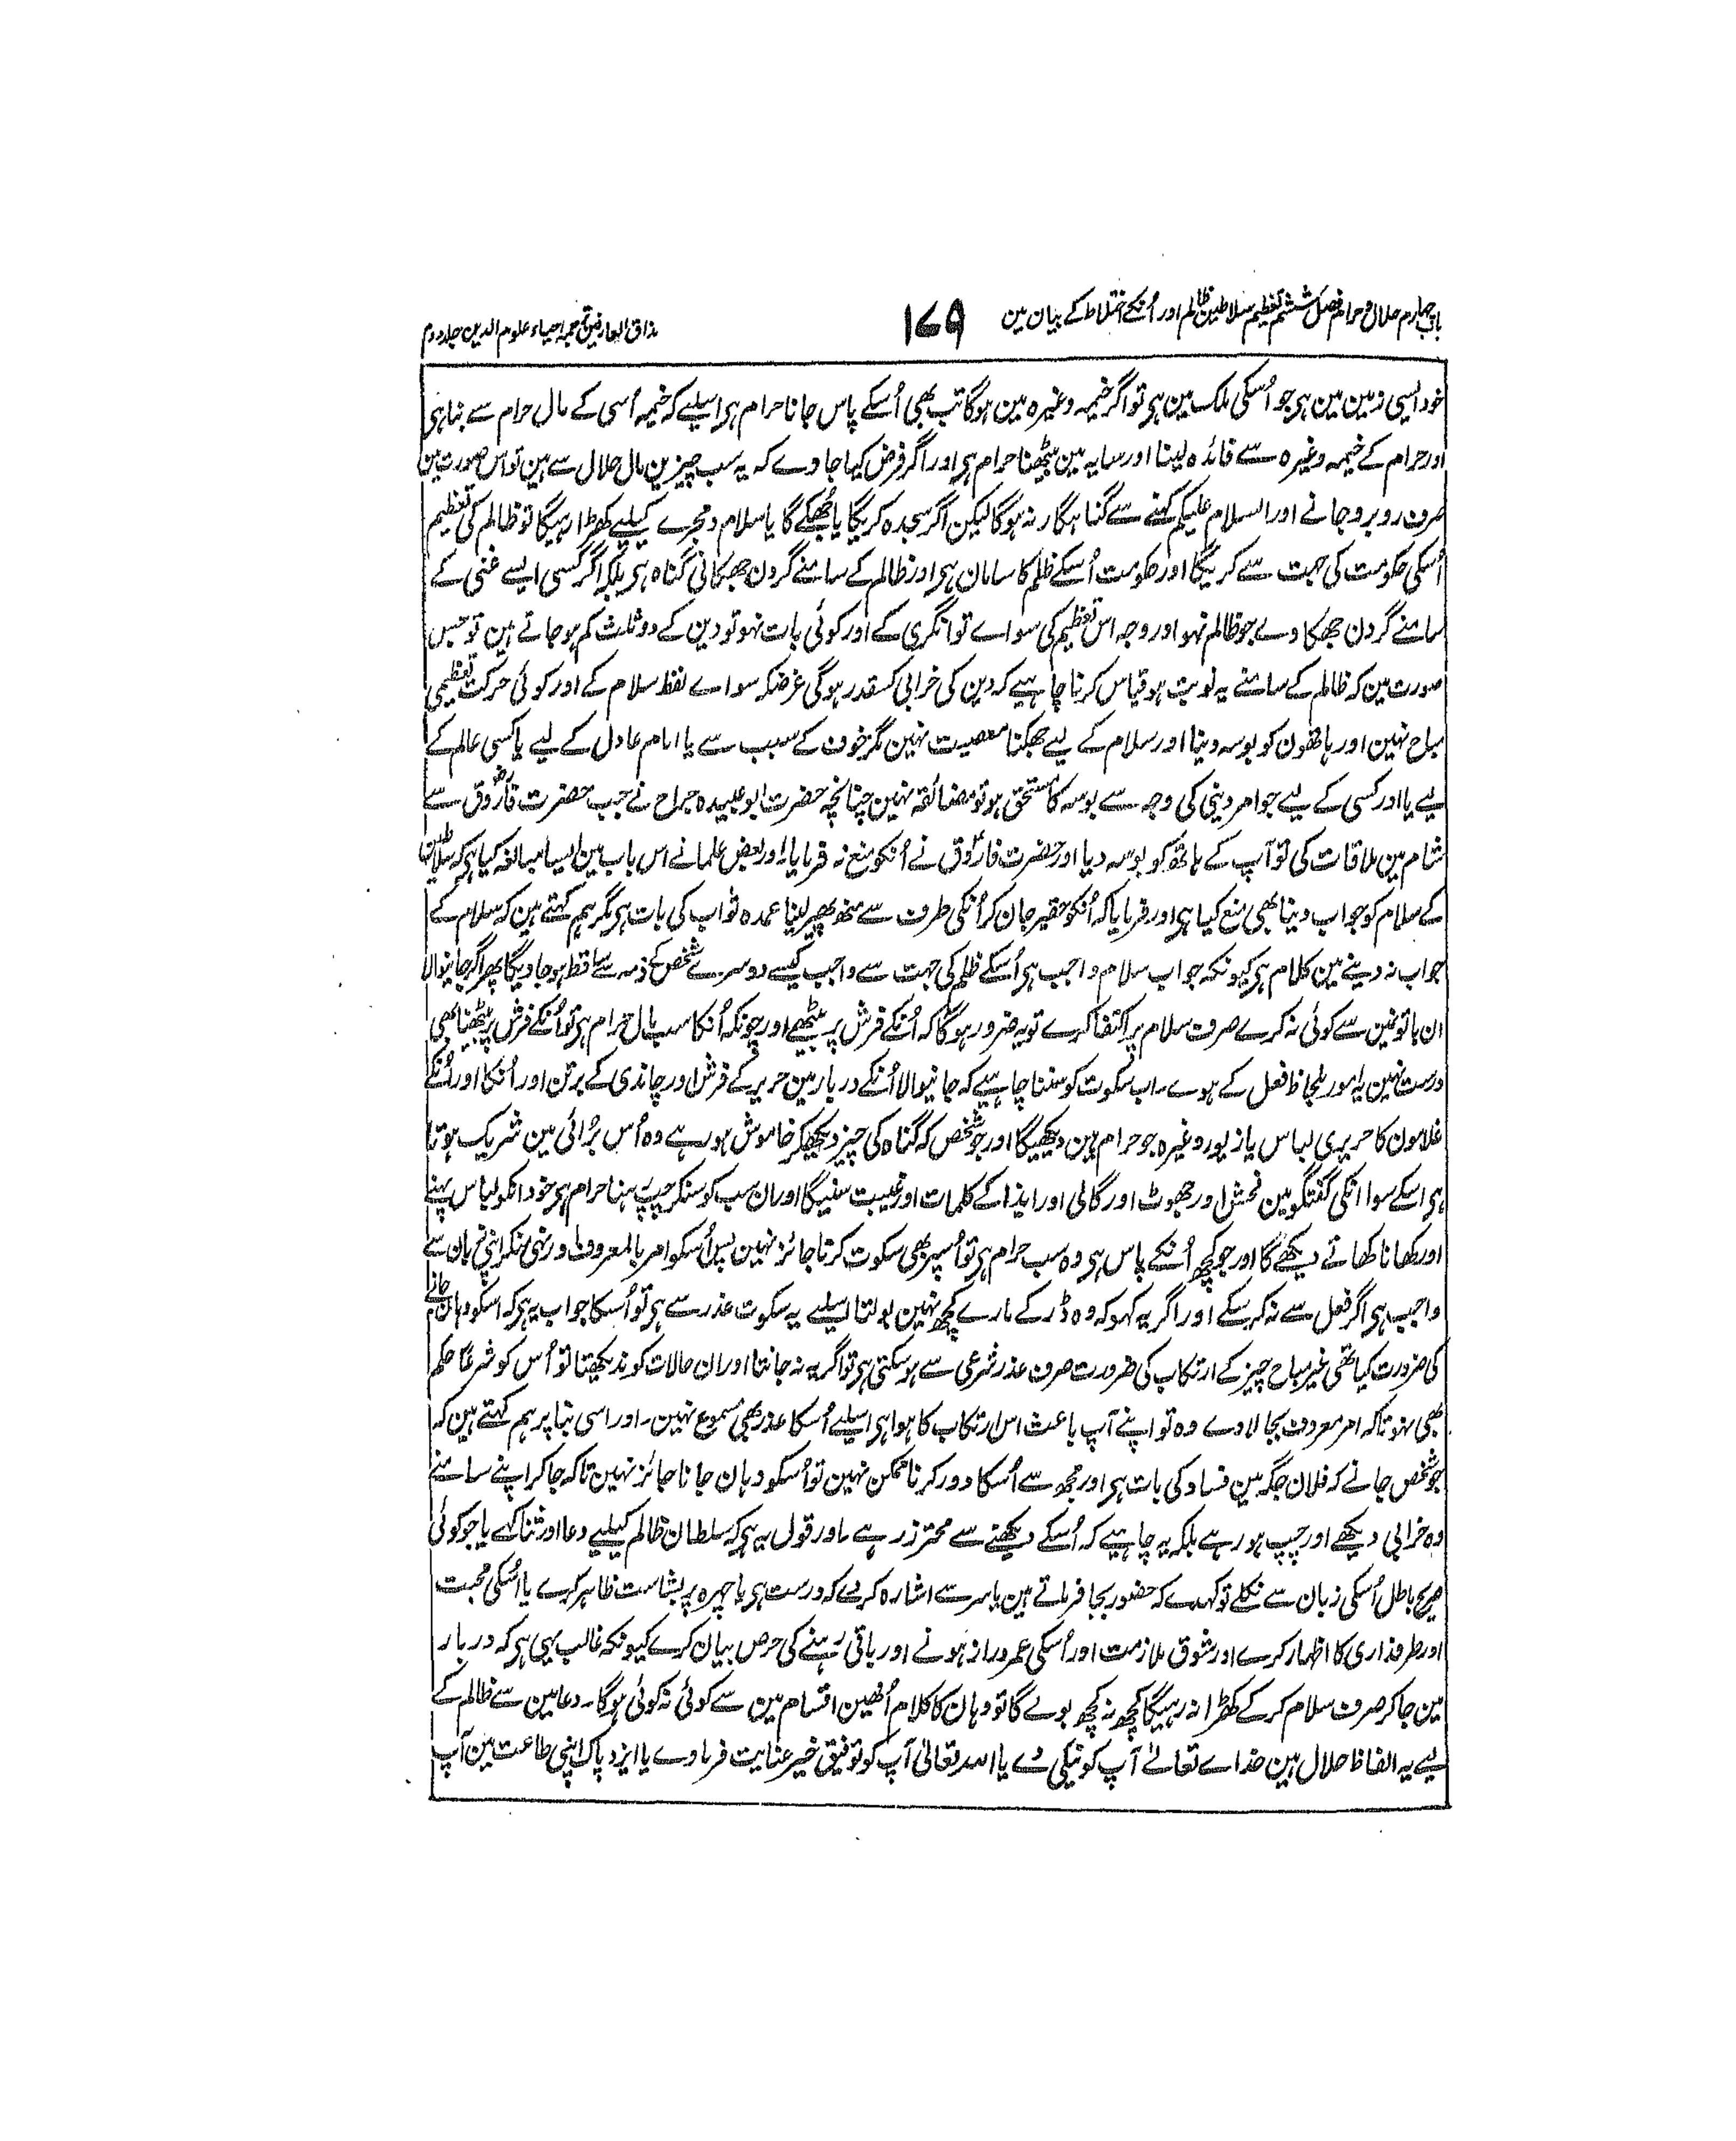 باب چہارم حلال و حرام فصل ششم تعظیم سلاطین ظالم اور اُنکے اختلاط کے بیان مین
۱۷۹
مذاق العارفین ترجمہ احیاء علوم الدین جلد دوم
خود ایسی زمین مین ہی جو اُسکی ملک مین ہی تو اگر خیمہ وغیرہ مین ہوگا تب بھی اُسکے پاس جانا حرام ہی اسلیے کہ خیمہ اُسی کے مال حرام سے بنا ہی
اور حرام کے خیمہ وغیرہ سے فائدہ لینا اور سایہ مین بیٹھنا حرام ہی اور اگر فرض کیا جاوے کہ یہ سب چیزین مال حلال سے ہین تو اس صورت مین
صرف روبرو جانے اور السلام علیکم کہنے سے گناہگار نہ ہوگا لیکن اگر سجدہ کریگا یا جُھکے گا یا سلام و مجرے کیلیے کھڑا رہیگا تو ظالم کی تعظیم
اُسکی حکومت کی جہت سے کریگا اور حکومت اُسکے ظلم کا سامان ہی اور ظالم کے سامنے گردن جھکانی گناہ ہی بلکہ اگر کسی ایسے غنی کے
سامنے گردن جھکاوے جو ظالم نہو اور وجہ اس تعظیم کی سواے توانگری کے اور کوئی بات نہو تو دین کے دو ثلث کم ہوجاتے ہین تو جس
صورت مین کہ ظالم کے سامنے یہ نوبت ہو قیاس کرنا چاہیے کہ دین کی خرابی کسقدر ہوگی غرضکہ سواے لفظ سلام کے اور کوئی حرکت تعظیمی
مباح نہین اور ہاتھون کو بوسہ دینا اور سلام کے لیے جھکنا معصیت نہین مگر خوف کے سبب سے یا امام عادل کے لیے یا کسی عالم کے
لیے یا اور کسی کے لیے جو امر دینی کی وجہ سے بوسہ کا مستحق ہو تو مضائقہ نہین چنانچہ حضرت ابو عبیدہ جراح نے جب حضرت فاروق سے
شام مین ملاقات کی تو آپ کے ہاتھ کو بوسہ دیا اور حضرت فاروق نے اُنکو منع نہ فرمایا اور بعض علما نے اس باب مین ایسا مبالغہ کیا ہی کہ سلاطین
کے سلام کو جواب دینا بھی منع کیا ہی اور فرمایا کہ اُنکو حقیر جان کر اُنکی طرف سے منھ پھیر لینا عمدہ ثواب کی بات ہی مگر ہم کہتے ہین کہ سلام کے
جواب نہ دینے مین کلام ہی کیونکہ جواب سلام واجب ہی اُسکے ظلم کی جہت سے واجب کیسے دوسرے شخص کے ذمہ سے ساقط ہو جاویگا پھر اگر جانیوالا
ان باتونین سے کوئی نہ کرے صرف سلام پر اکتفا کرے تو یہ ضرور ہوگا کہ اُنکے فرش پر بیٹھے اور چونکہ اُنکا سب مال حرام ہی تو اُنکے فرش پر بیٹھنا بھی
درست نہین یہ امور بلحاظ فعل کے ہوے۔ اب سکوت کو سننا چاہیے کہ جانیوالا اُنکے دربار مین حریر کے فرش اور چاندی کے برتن اور اُنکا اور اُنکے
غلامون کا حریری لباس یا زیور وغیرہ جو حرام ہین دیکھیگا اور جو شخص کہ گناہ کی چیز دیکھکر خاموش ہو رہے وہ اُس بُرائی مین شریک ہوتا
ہی اسکے سوا انکی گفتگو مین فحش اور جھوٹ اور گالی اور ایذا کے کلمات اور غیبت سنیگا اور ان سب کو سنکر چپ رہنا حرام ہی خود انکو لباس پہنے
اور کھانا کھاتے دیکھے گا اور جو کچھ اُنکے پاس ہی وہ سب حرام ہی تو اُسپر بھی سکوت کرنا جائز نہین پس اُسکو امر بالمعروف اور نہی منکر اپنی زبان سے
واجب ہی اگر فعل سے نہ کر سکے اور اگر یہ کہو کہ وہ ڈر کے مارے کچھ نہین بولتا اسلیے یہ سکوت عذر سے ہی تو اُسکا جواب یہ ہی کہ اسکو وہان جانے
کی ضرورت کیا تھی غیر مباح چیز کے ارتکاب کی ضرورت صرف عذر شرعی سے ہو سکتی ہی تو اگر یہ نہ جاتا اور ان حالات کو ندیکھتا تو اُس کو شرعًا حکم
بھی نہوتا کہ امر معروف بجا لاوے وہ تو اپنے آپ باعث اس ارتکاب کا ہوا ہی اسلیے اُسکا عذر بھی مسموع نہین۔ اور اسی بنا پر ہم کہتے ہین کہ
جو شخص جانے کہ فلان جگہ مین فساد کی بات ہی اور مجھ سے اُسکا دور کرنا ممکن نہین تو اُسکو وہان جانا جائز نہین تاکہ جا کر اپنے سامنے
وہ خرابی دیکھے اور چپ ہو رہے بلکہ یہ چاہیے کہ اُسکے دیکھنے سے محترز رہے ۔اور قول یہ ہی کہ سلطان ظالم کیلیے دعا اور ثنا کہے یا جو کوئی
صریح باطل اُسکی زبان سے نکلے تو کہدے کہ حضور بجا فرماتے ہین یا سر سے اشارہ کردے کہ درست ہی یا چہرہ پر بشاشت ظاہر کرے یا اُسکی محبت
اور طرفداری کا اظہار کرے اور شوق ملازمت اور اُسکی عمر دراز ہونے اور باقی رہنے کی حرص بیان کرے کیونکہ غالب یہی ہی کہ دربار
مین جا کر صرف سلام کر کے کھڑا نہ رہیگا کچھ نہ کچھ بولے گا تو وہان کا کلام اُنھین اقسام مین سے کوئی نہ کوئی ہوگا۔ دعا مین سے ظالم کے
لیے یہ الفاظ حلال ہین خداے تعالےٰ آپ کو نیکی دے یا اللہ تعالیٰ آپ کو توفیق خیر عنایت فرماوے یا ایزد پاک اپنی طاعت مین آپ